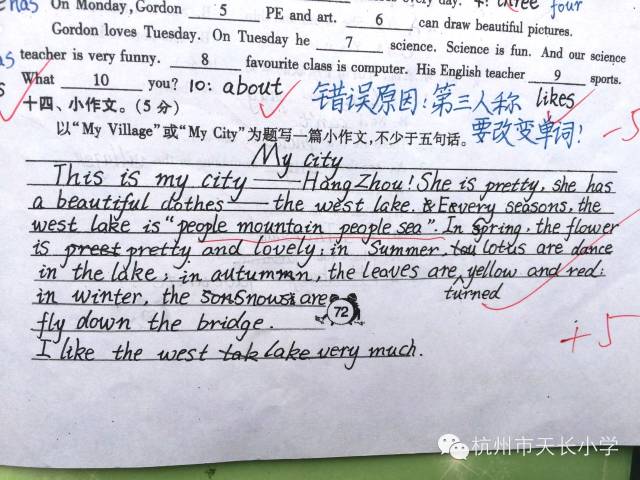 On Monday, Gordon 5 PE and art. 6 can draw beautiful pictures. three four
Gordon loves Tuesday. On Tuesday he 7 science. Science is fun. And our science
teacher is very funny. 8 favourite class is computer. His English teacher 9 sports.
What 10 you? 10: about likes
错误原因:第三人称
要改变单词!
十四、小作文。(5分)
以“My Village”或“My City”为题写一篇小作文,不少于五句话。
My city
This is my city——HangZhou! She is pretty, she has
a beautiful clothes—the west lake. Every seasons, the
west lake is “people mountain people sea”. In Spring, the flower
is pretty and lovely; in Summer, lotus are dance
in the lake; in autumn, the leaves are turned yellow and red;
in winter, the snows are
72
fly down the bridge.
I like the west lake very much.
-5
+5
杭州市天长小学